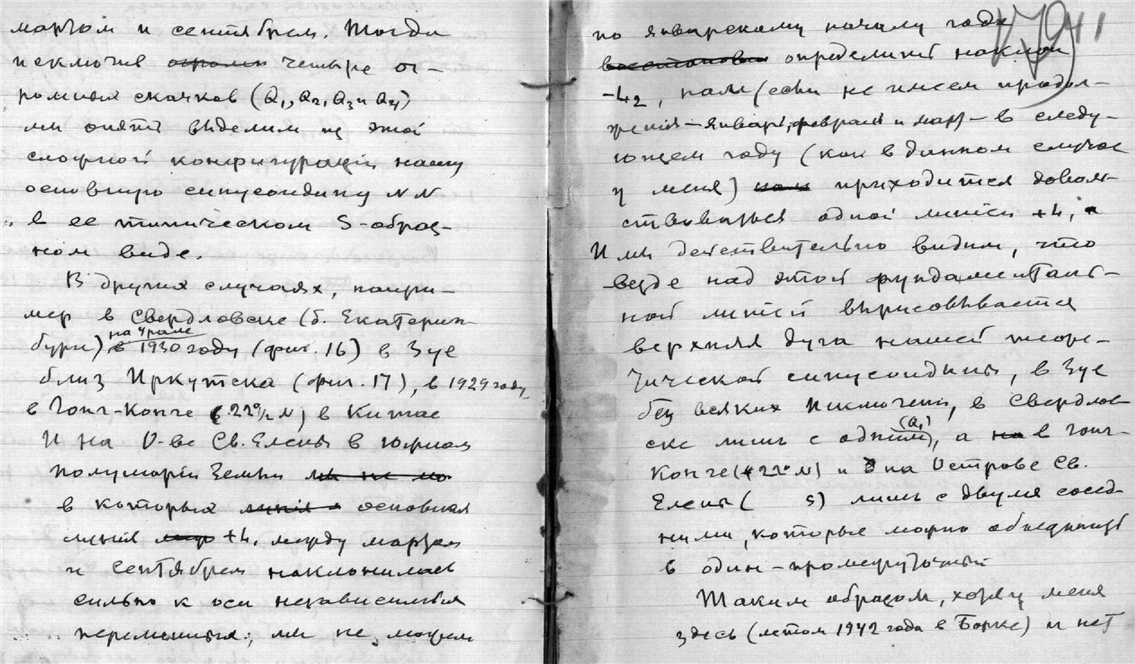 мартом и сентябрем. Тогда
исключив огромн четыре ог-
ромных скачков (Q1, Q2, Q3 и Q4)
мы опять выделим из этой
сложной конфигураціи нашу
основную синусоидину NN
в ее типическом S-образ-
ном виде.
В других случаях, напри-
мер в Свердловске (б. Екатерин-
на Урале
бург) в 1930 году (фиг. 16) в Зуе
близ Иркутска (фиг. 17), в 1929 году,
в Гонг-Конге (22°1/2 N) в Китае
И на О-ве Св. Елены в южном
полушаріи Земли
в которых основная
линія +L1 между мартом
и сентябрем наклонилась
сильно к оси независимыя
переменныя; мы не можем
1941
по январскому началу года
определить наклон
-L2, нам (если не имеем продол-
жения – январь, февраль и март – в следу-
ющем году (как в данном случае
у меня) приходится доволь-
ствоваться одной линіей +L1
И мы действительно видим, что
везде над этой фундаменталь-
ной линіей вырисовывается
верхняя дуга нашей теоре-
тической синусоидины, в Зуе
без всяких исключений, в Свердлов-
(Q1)
ске лишь с одним, а на в Гонг-
Конге (+22° N) и на Острове Св.
Елены ( S) лишь с двумя сосед-
ними, которые можно объединить
в один – промежуточный
Таким образом, хотя у меня
здесь (летом 1942 года в Борке) и нет